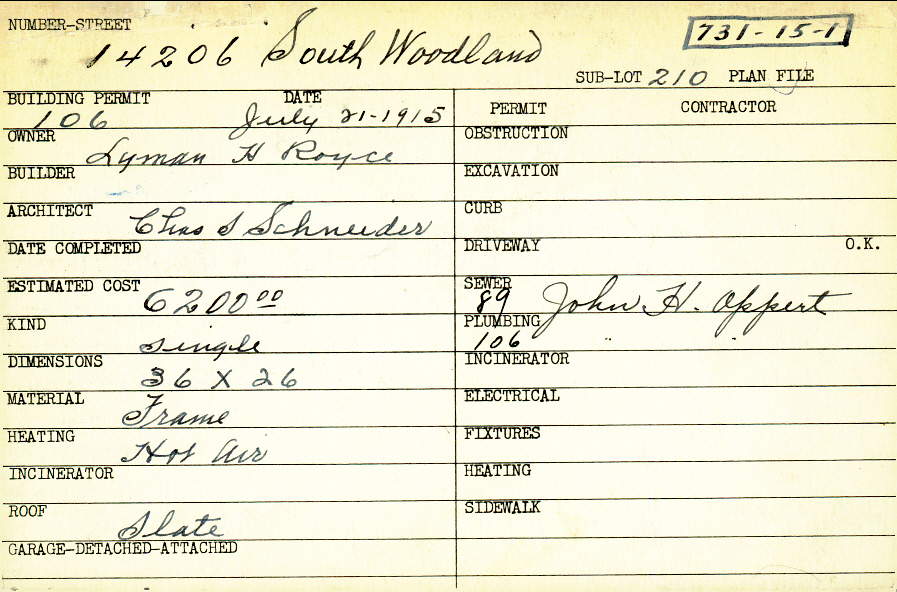 NUMBER-STREET
14206 South Woodland
731-15-1
SUB-LOT 210 PLAN FILE
BUILDING PERMIT DATE
106 July 21-1915
OWNER Lyman H Royce
BUILDER
ARCHITECT Chas S Schneider
DATE COMPLETED
ESTIMATED COST 6200 00
KIND single
DIMENSIONS 36 X 26
MATERIAL Frame
HEATING Hot Air
INCINERATOR
ROOF Slate
GARAGE-DETACHED-ATTACHED
PERMIT CONTRACTOR
OBSTRUCTION
EXCAVATION
CURB
DRIVEWAY O.K.
SEWER
89 John H. Oppert
PLUMBING
106 " "
INCINERATOR
ELECTRICAL
FIXTURES
HEATING
SIDEWALK